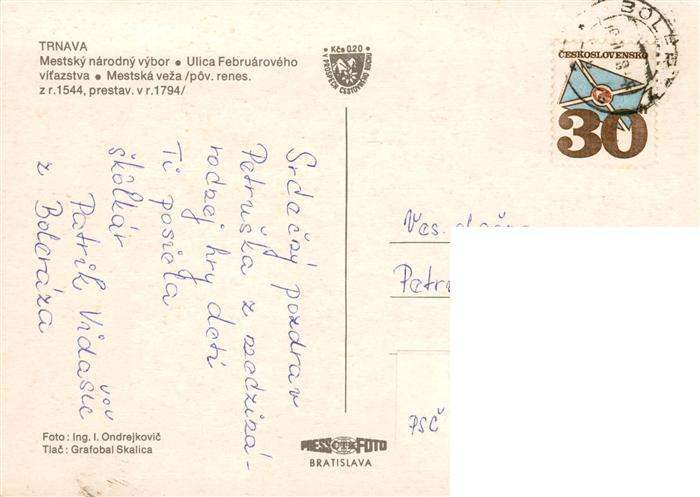 TRNAVA
Mestský národný výbor • Ulica Februárového
víťazstva • Mestská veža /pôv. renes.
z r. 1544, prestav. v r. 1794/
Kčs 0.20
V PROSPECH CESTOVNÉHO RUCHU
ČESKOSLOVENSKO
30
Srdečný pozdrav
Petruška z medzizá-
rodzej hry detí
Ti posiela
škôlkár
Patrik Vidašič
z Boleráza
Ves.
Petru
PSČ
Foto: Ing. I. Ondrejkovič
Tlač: Grafobal Skalica
PRESSFOTO
BRATISLAVA